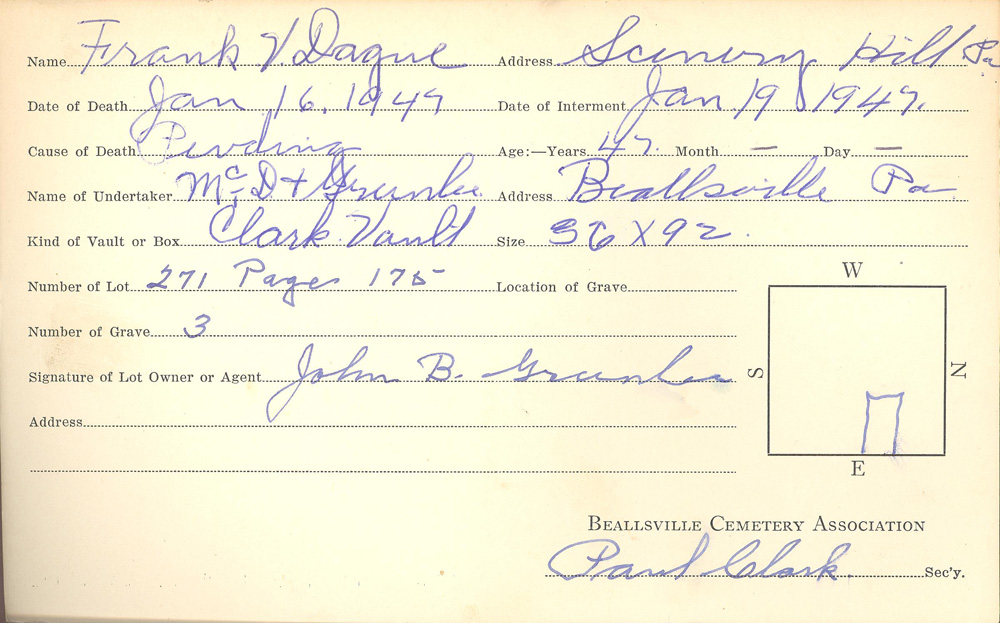 Name Frank V. Dague Address Scenery Hill Pa
Date of Death Jan 16, 1947 Date of Interment Jan 19 1947.
Cause of Death Pending Age:—Years 47. Month — Day —
Name of Undertaker McD + Greenlee Address Beallsville Pa
Kind of Vault or Box Clark Vault Size 36 X 92.
Number of Lot 271 Pages 175 Location of Grave
W
Number of Grave 3
Signature of Lot Owner or Agent John B. Greenlee
S N
Address
E
BEALLSVILLE CEMETERY ASSOCIATION
Paul Clark. Sec'y.